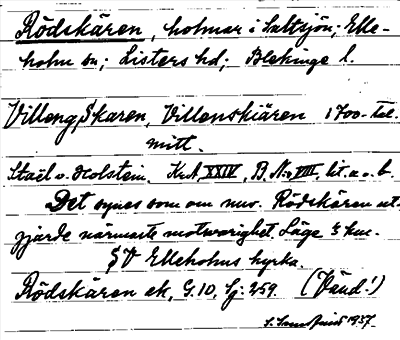 Rödskären, holmar i Saltsjön; Elle-
holm sn; Listers hd; Blekinge l.
Villeng, Skaren, Villenskiären 1700-tal.
mitt.
Stael v. Holstein. Kr.A. XXIV, B. N:o VIII, lit. a o. b.
Det synes som om nuv. Rödskären ut-
gjärde närmaste motsvarighet. Läge 3 km.
SV Ellehohns kyrka.
Rödskären ek, G. 10, Sj: 259. (Vänd!)
1937.